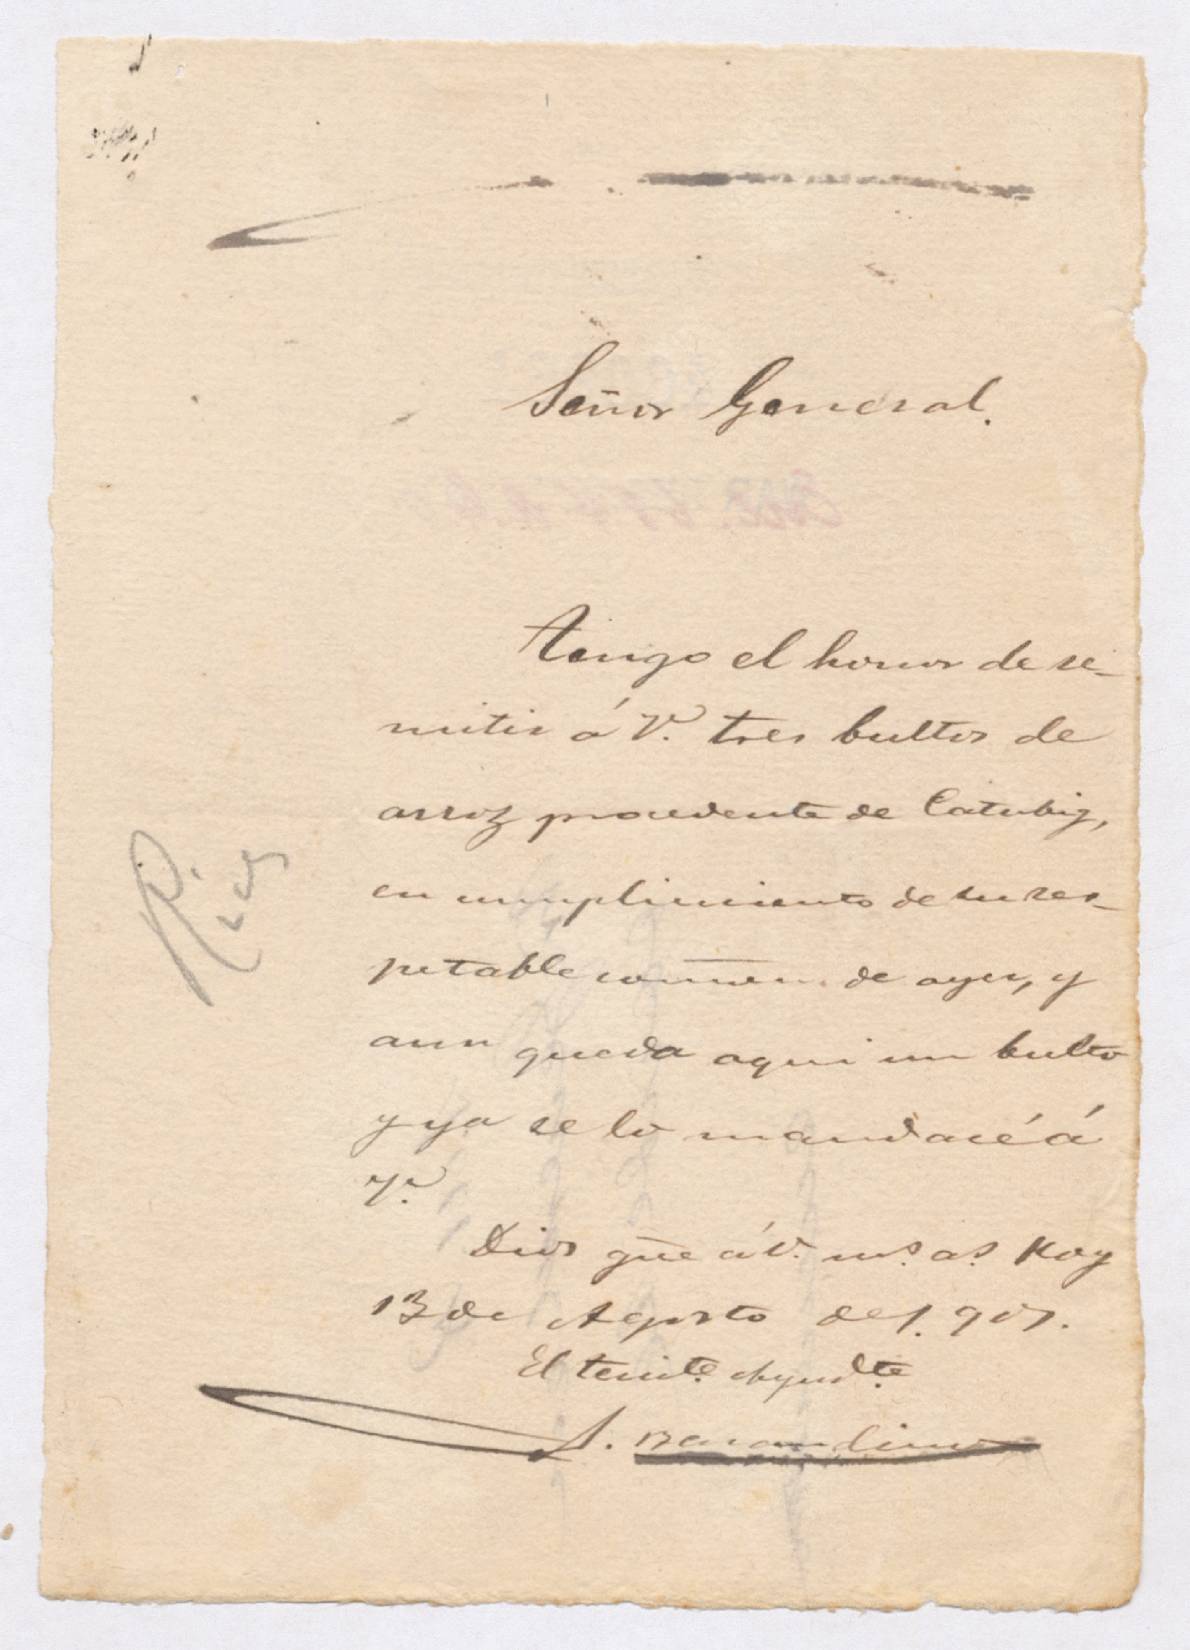 Señor General.
Tengo el honor de re-
mitir á V. tres bultos de
arroz procedente de Catubig,
en cumplimiento de su res-
petable comun. de ayer, y
aun queda aqui un bulto
y ya se lo mandaré á
V.
Dios gue á V. ms. as. Hoy
13 de Agosto de 1.901.
El tenite. Ayudte.
Rice